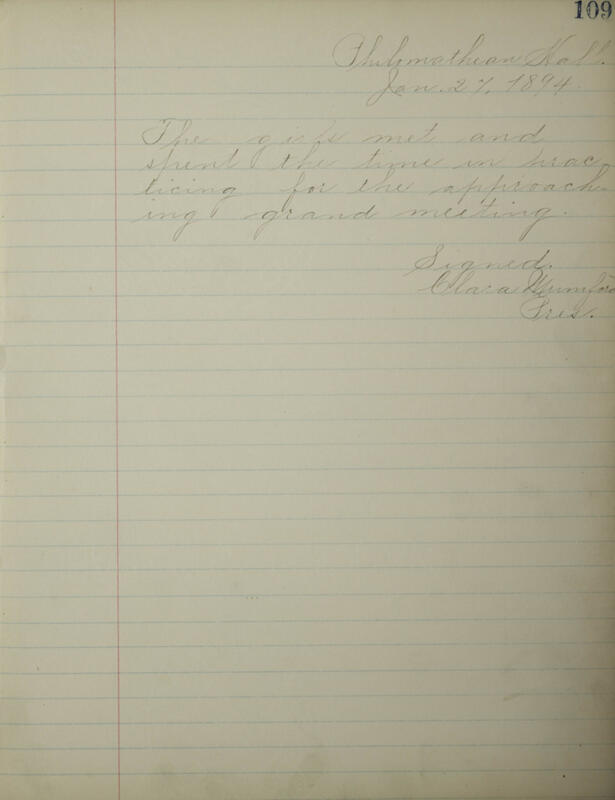 109
Philomathean Hall.
Jan. 27, 1894.
The girls met and
spent the time in prac
ticing for the approach-
ing grand meeting.
Signed.
Clara Mumford
Pres.